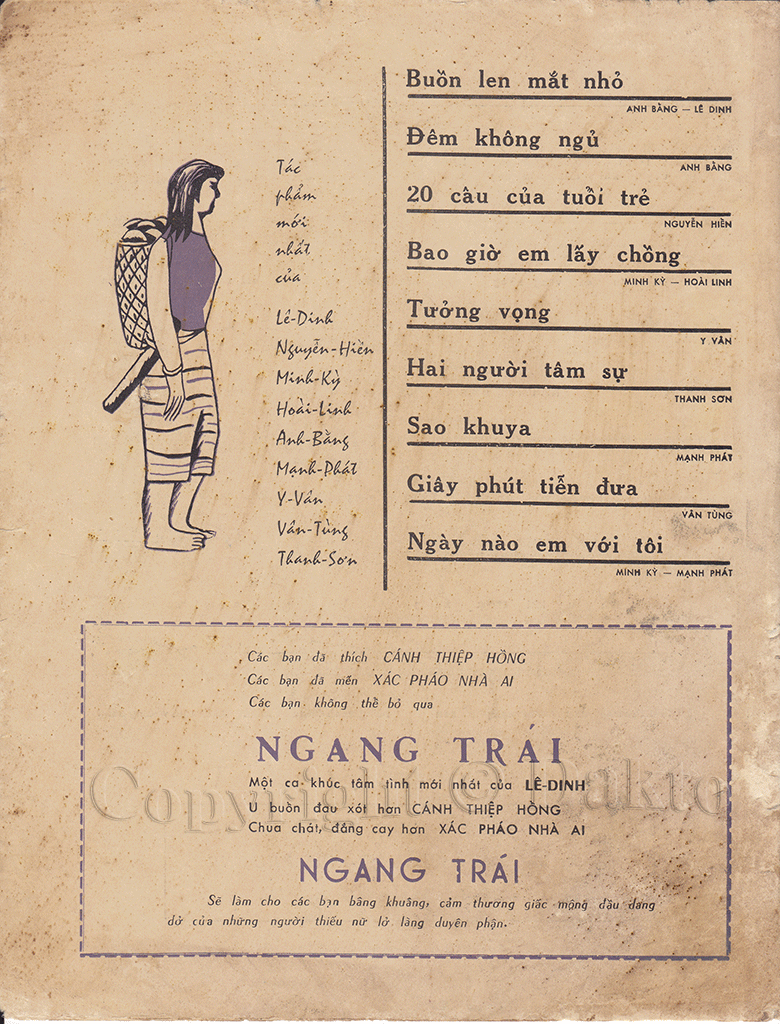 Tác
phẩm
mới
nhất
của
Lê-Dinh
Nguyễn-Hiền
Minh-Kỳ
Hoài-Linh
Anh-Bằng
Mạnh-Phát
Y-Vân
Vân-Tùng
Thanh-Sơn
Buồn len mắt nhỏ
ANH BẰNG — LÊ DINH
Đêm không ngủ
ANH BẰNG
20 câu của tuổi trẻ
NGUYỄN HIỀN
Bao giờ em lấy chồng
MINH KỲ — HOÀI LINH
Tưởng vọng
Y VÂN
Hai người tâm sự
THANH SƠN
Sao khuya
MẠNH PHÁT
Giây phút tiễn đưa
VÂN TÙNG
Ngày nào em với tôi
MINH KỲ — MẠNH PHÁT
Các bạn đã thích CÁNH THIỆP HỒNG
Các bạn đã mến XÁC PHÁO NHÀ AI
Các bạn không thể bỏ qua
NGANG TRÁI
Một ca khúc tâm tình mới nhất của LÊ-DINH
U buồn đau xót hơn CÁNH THIỆP HỒNG
Chua chát, đắng cay hơn XÁC PHÁO NHÀ AI
Copyright © Dakto
NGANG TRÁI
Sẽ làm cho các bạn bâng khuâng, cảm thương giấc mộng đầu dang
dở của những người thiếu nữ lở làng duyên phận.